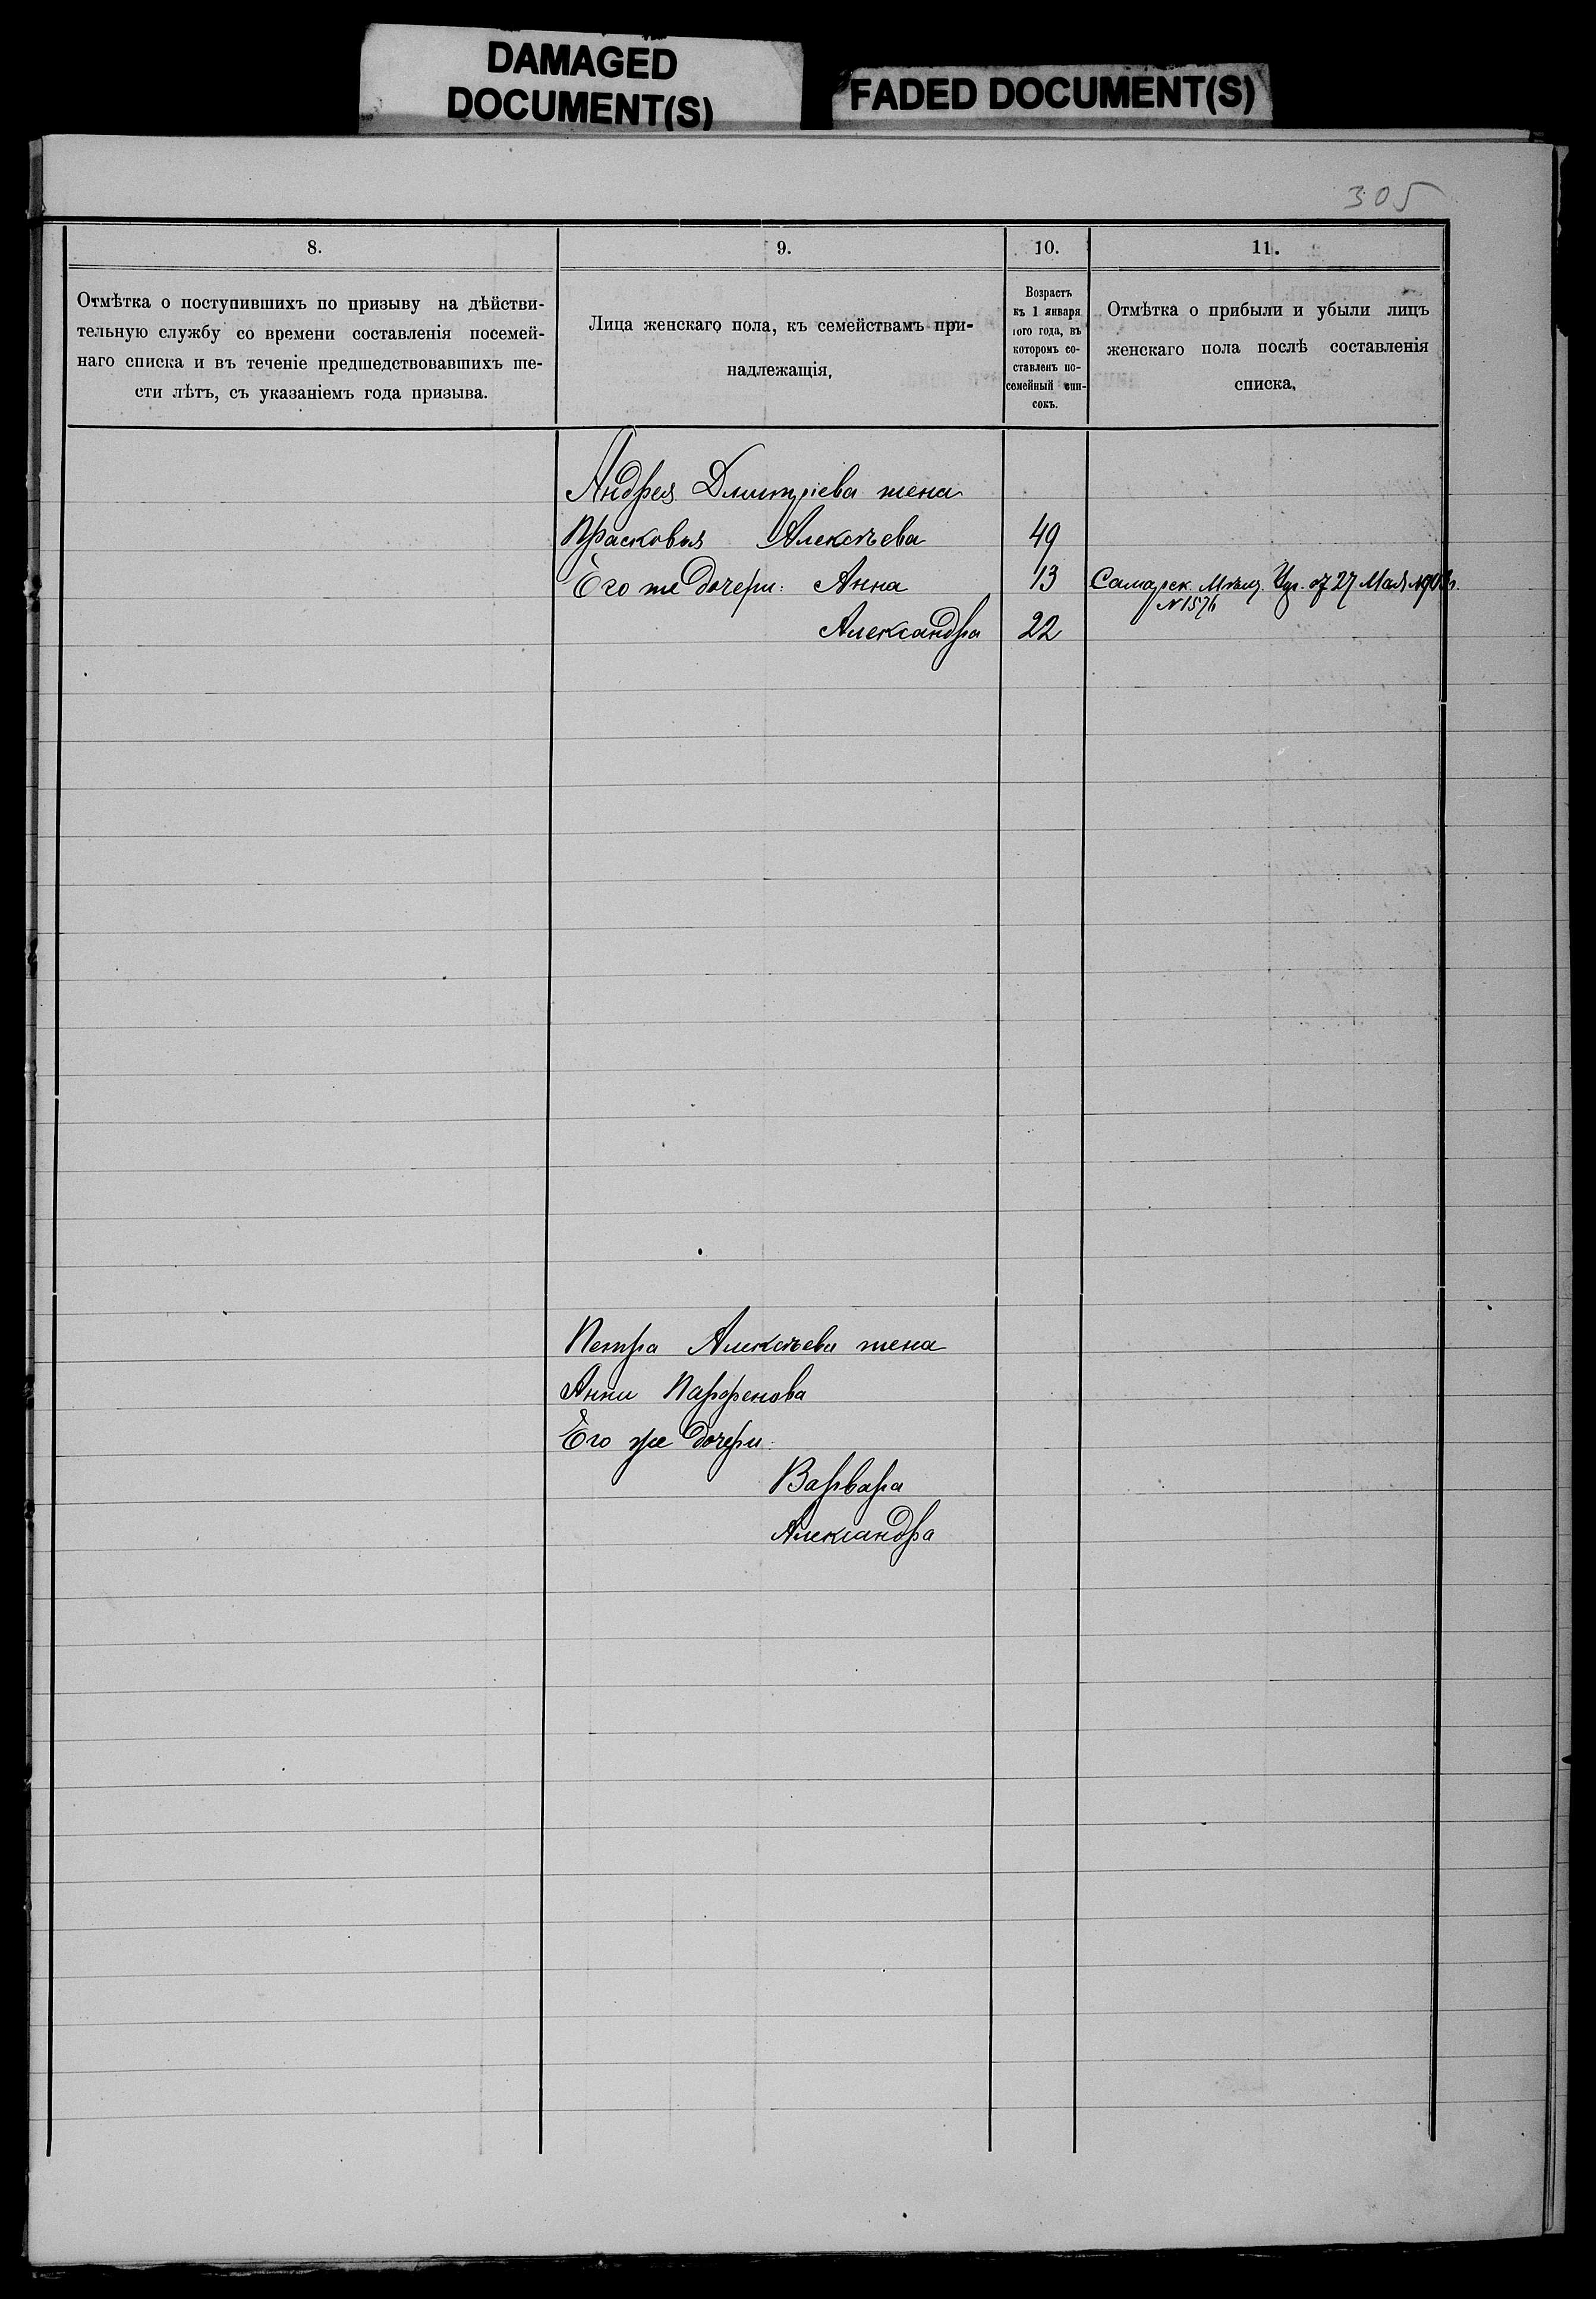 DAMAGED
DOCUMENT(S)
FADED DOCUMENT(S)
305
8.
Отмѣтка о поступившихъ по призыву на дѣйстви-
тельную службу со времени составленія посемей-
наго списка и въ теченіе предшедствовавшихъ ше-
сти лѣтъ, съ указаніемъ года призыва.
9.
Лица женскаго пола, къ семействамъ при-
надлежащія,
10.
Возрастъ
къ 1 января
того года, въ
которомъ со-
ставленъ по-
семейный спи-
сокъ.
11.
Отмѣтка о прибыли и убыли лицъ
женскаго пола послѣ составленія
списка,
Андрея Дмитріева жена
Прасковья Алексѣева 49
Его же дочери: Анна 13 Самарск. Мѣщ. Упр. от 27 Мая
N 1576
Александра 22
Петра Алексѣева жена
Анна Парфенова
Его же дочери:
Варвара
Александра